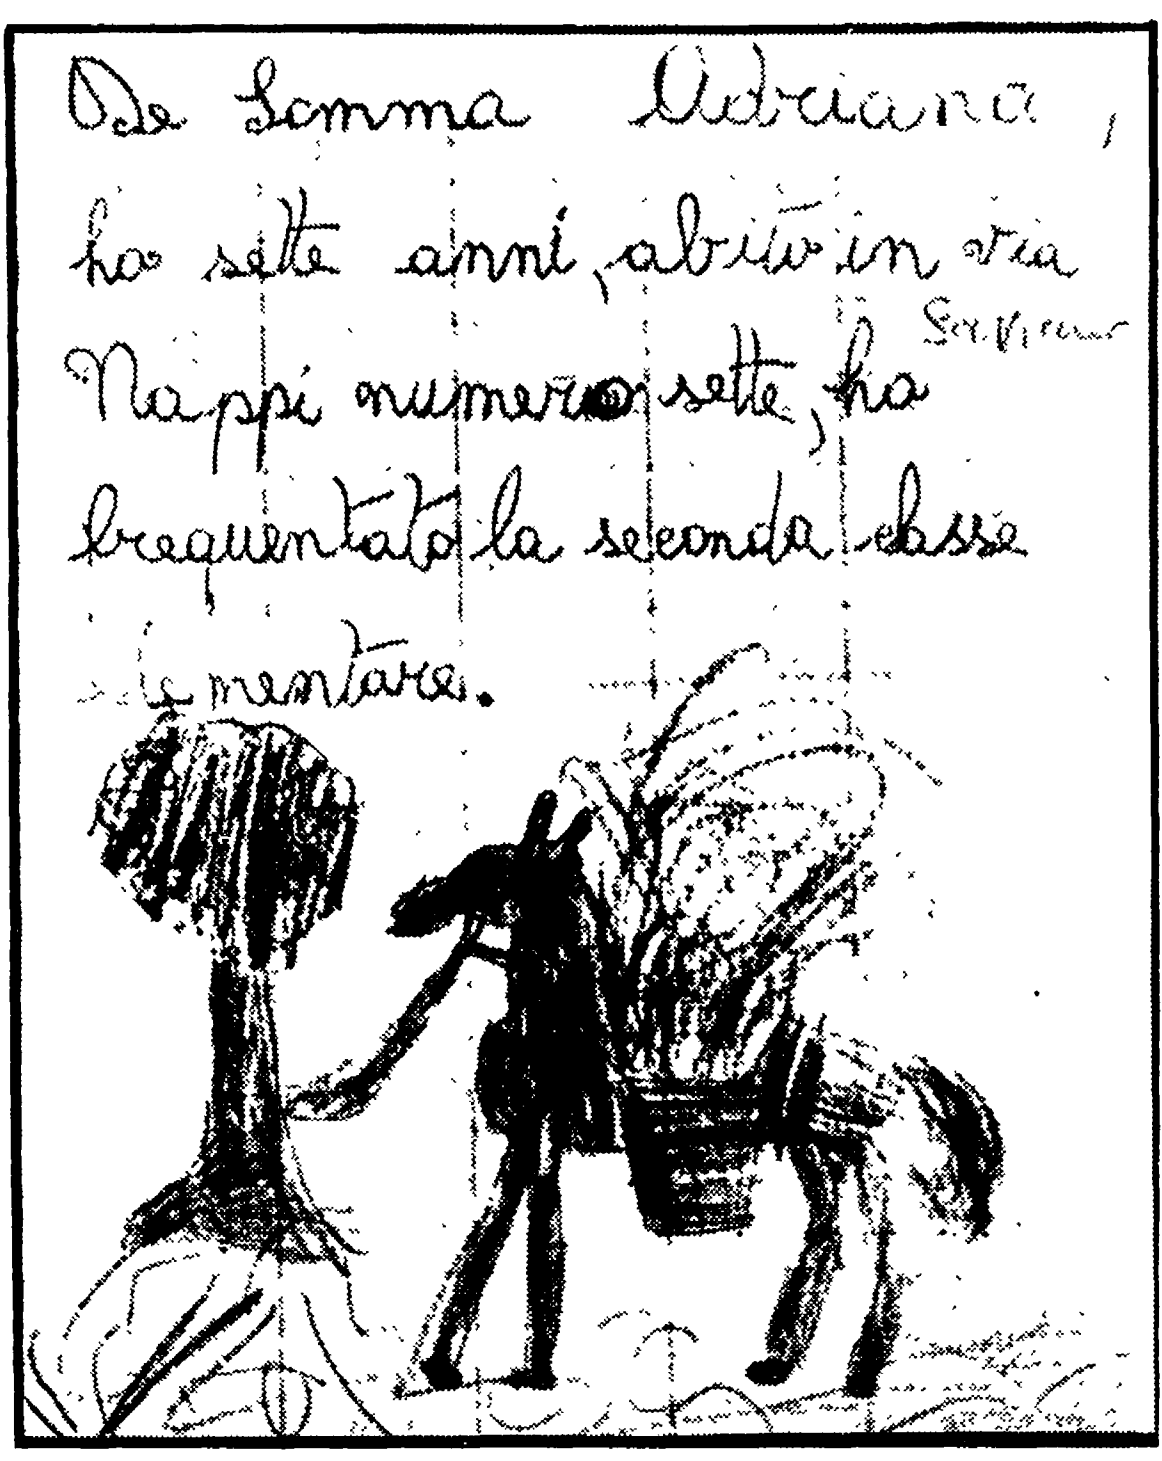 De Somma Adriana,
ho sette anni, abito in via
Nappi numero sette, ho
frequentato la seconda classe
lementare.